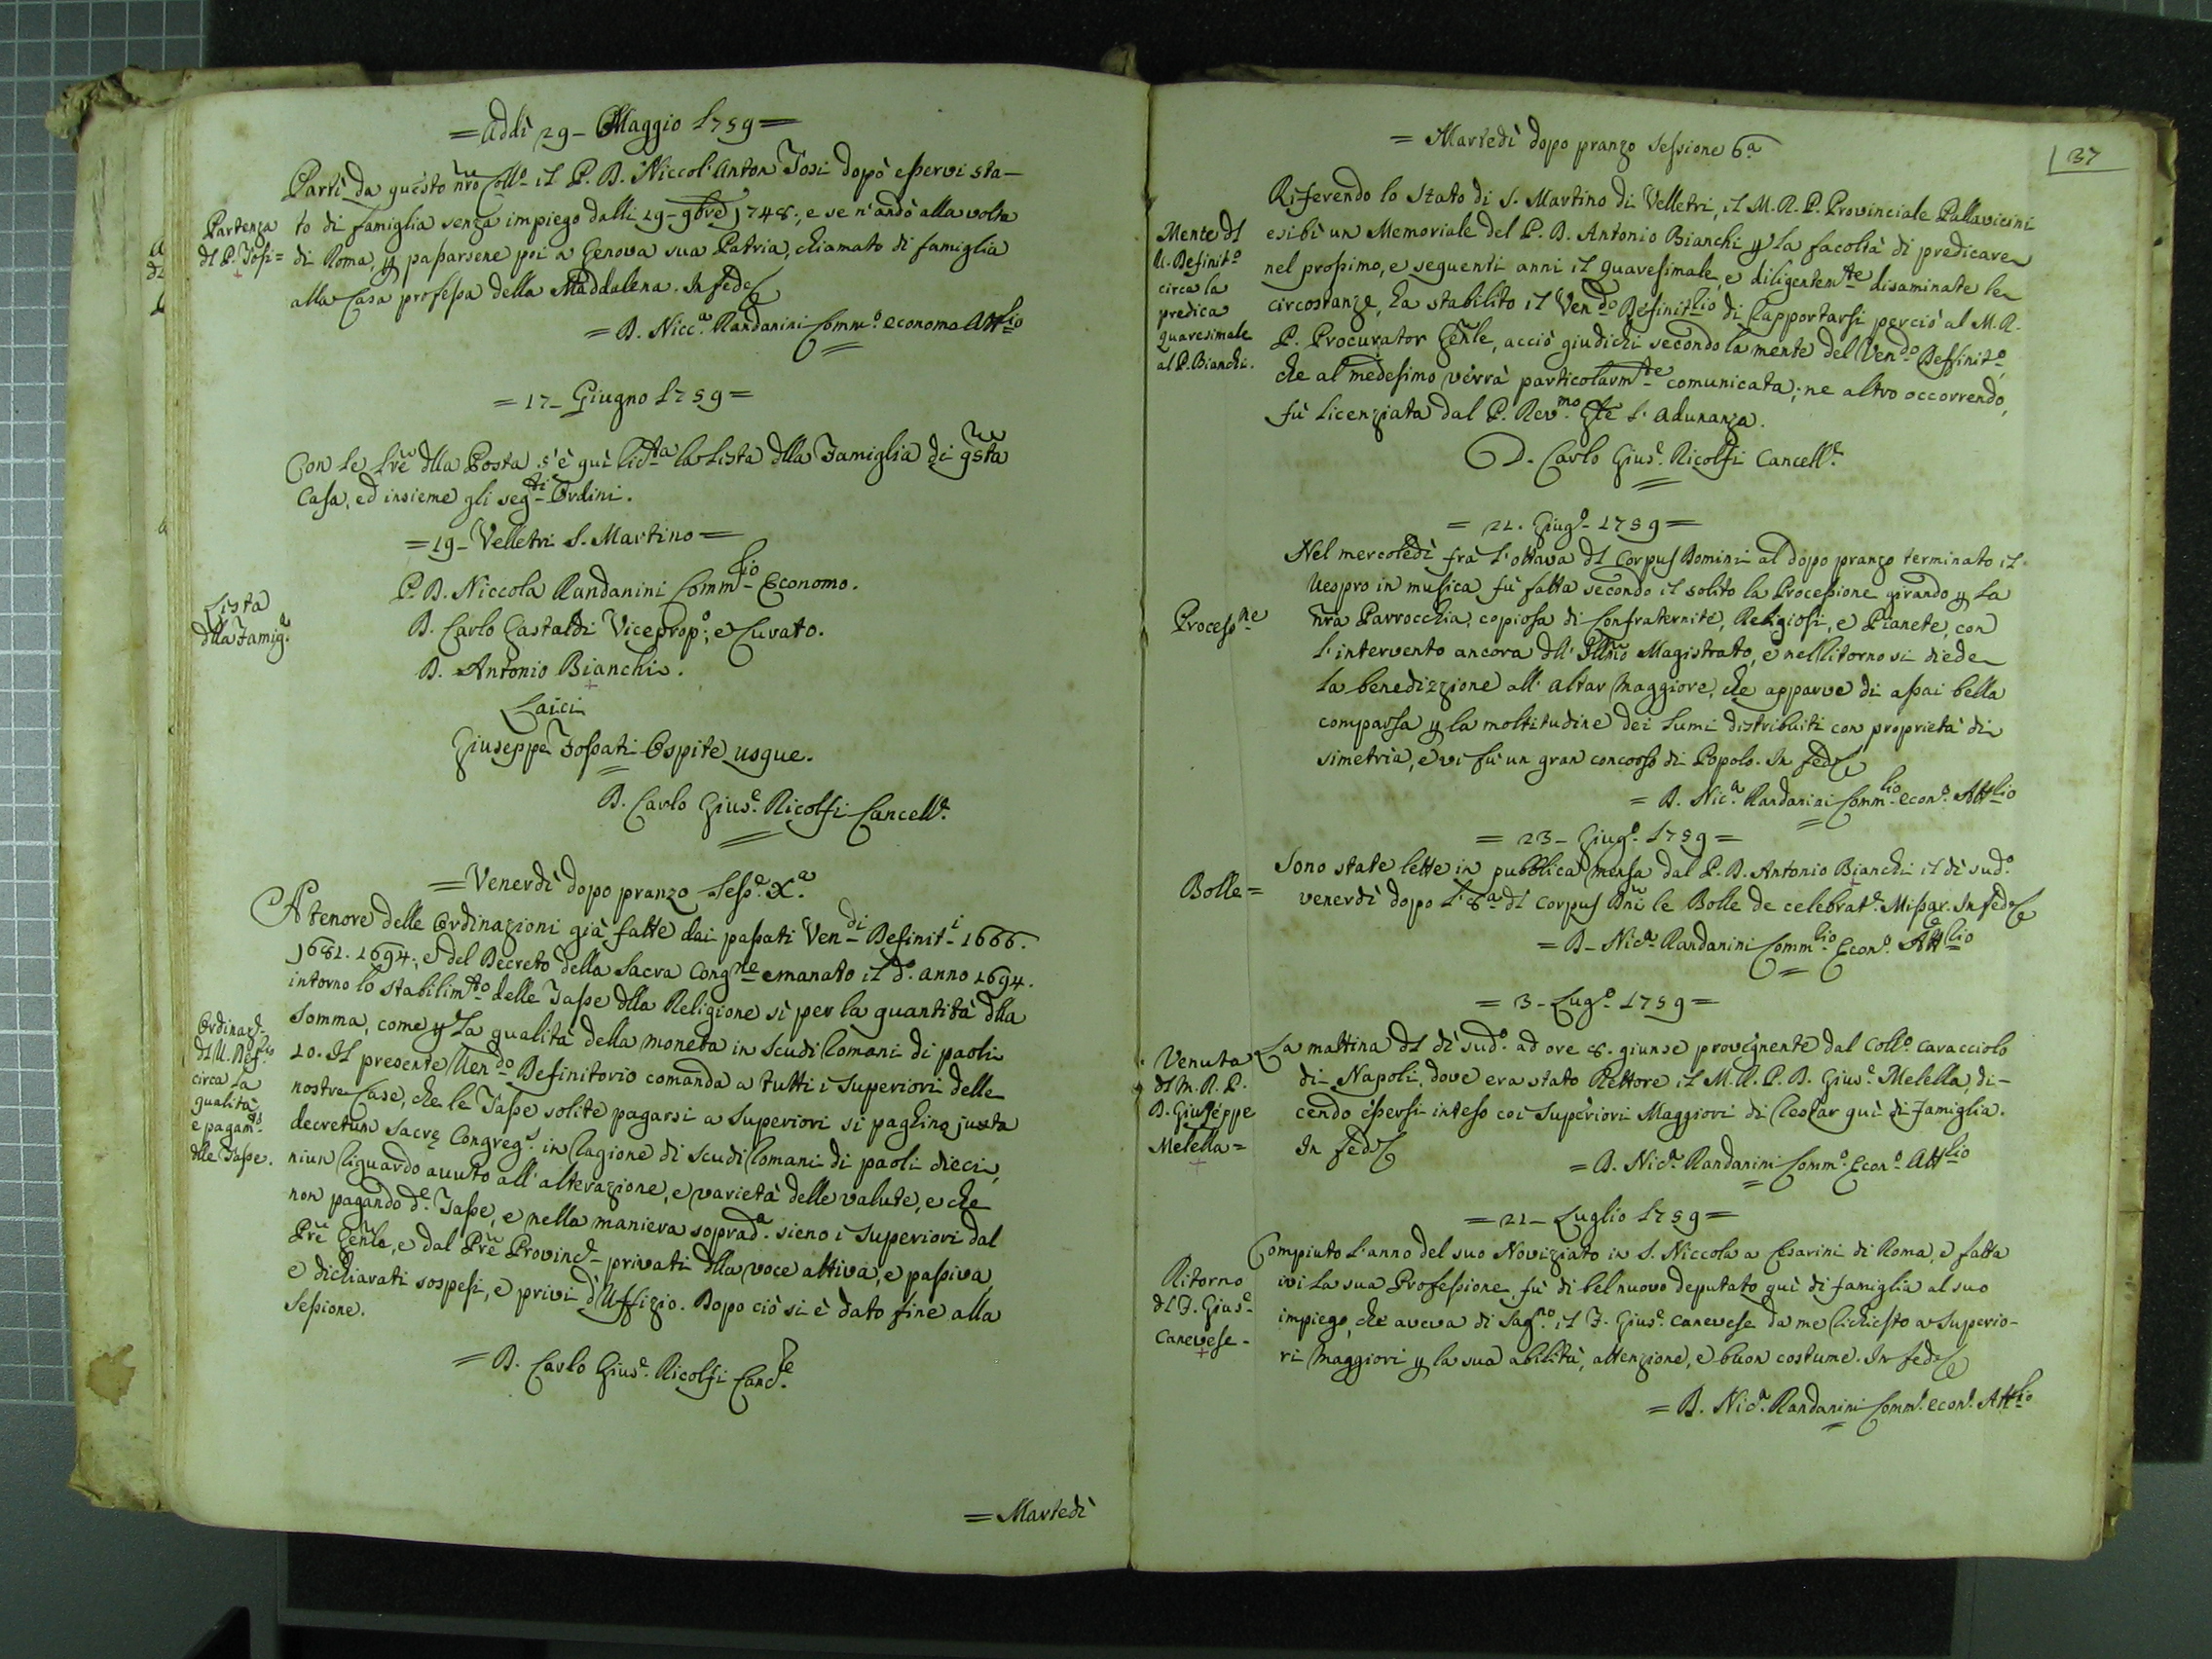 = Addì 29 - Maggio 1759 =
Partì da questo nro Collo il P. D. Niccol' Anton Tosi dopò esservi sta-
Partenza
dl P. Tosi =
to di famiglia senza impiego dalli 19 - 9bre 1748; e se n'andò alla volta
di Roma, p passarsene poi a Genova sua Patria, chiamato di famiglia
alla Casa professa della Maddalena. In fede
= D. Nicca Randanini Commo economo Attlio
= 17 - Giugno 1759 =
Con le lre dlla Posta s'è quì ricta la Lista dlla Famiglia di qsta
Casa, ed insieme gli segti Ordini.
= 19 - Velletri S. Martino =
Lista
dlla Famiga
P. D. Niccola Randanini Commrio Economo.
D. Carlo Gastaldi Vicepropo; e Curato.
D. Antonio Bianchi.
Laici
Giuseppe Fossati Ospite usque.
D. Carlo Giuse Ricolfi Cancelle
= Venerdì dopo pranzo Sesse Xa
A tenore delle Ordinazioni già fatte dai passati Vendi Definiti 1666.
1681. 1694; e del Decreto della Sacra Congne emanato il do anno 1694.
intorno lo stabilimto delle Tasse dlla Religione sì per la quantità dlla
Somma, come p la qualità della moneta in Scudi Romani di paoli
10. Il presente Vendo Definitorio comanda a tutti i Superiori delle
nostre Case, che le Tasse solite pagarsi a Superiori si paghino juxta
decretum Sacrę Congregs in ragione di Scudi Romani di paoli dieci,
niun riguardo avuto all'alterazione, e varietà delle valute, e che
non pagando de Tasse, e nella maniera soprada sieno i Superiori dal
Pre Genle, e dal Pre Province privati dlla voce attiva, e passiva,
e dichiarati sospesi, e privi d'Uffizio. Dopo ciò si è dato fine alla
Sessione.
Ordinaze
dl V. Deflio
circa la
qualità
e pagamto
dlle Tasse.
= D. Carlo Giuse Ricolfi Cance
= Martedì
37
= Martedì dopo pranzo Sessione 6a
Riferendo lo Stato di S. Martino di Velletri, il M. R. P. Provinciale Pallavicini
esibì un Memoriale del P. D. Antonio Bianchi p la facoltà di predicare
nel prossimo, e seguenti anni il quaresimale, e diligentemte disaminate le
circostanze, ha stabilito il Vendo Definitlio di rapportarsi perciò al M. R.
P. Procurator Genle, acciò giudichi secondo la mente del Vendo Deffinito,
che al medesimo verrà particolarmte comunicata; ne altro occorrendo,
fù licenziata dal P. Revmo Gle l'adunanza.
Mente dl
V. Definito
circa la
predica
quaresimale
al P. Bianchi.
D. Carlo Giuse Ricolfi Cancelle
= 21. Giugo 1759 =
Nel mercoledì frà l'ottava dl Corpus Domini al dopo pranzo terminato il
Vespro in musica fù fatta secondo il solito la Processione girando p la
nra Parrocchia, copiosa di Confraternite, Religiosi, e Pianete, con
l'intervento ancora dll'Illmo Magistrato, e nel ritorno si diede
la benedizzione all'altar Maggiore, che apparve di assai bella
comparsa p la moltitudine dei lumi distribuiti con proprietà di
simetria, e vi fù un gran concorso di Popolo. In fede
Processne
= D. Nica Randanini Commlio Econo Attlio
= 23 - Giugo 1759 =
Bolle =
Sono state lette in pubblica mensa dal P. D. Antonio Bianchi il dì sudo
venerdì dopo l'8a dl Corpus Dni le Bolle de celebrate Missar. In fede
= D. Nica Randanini Commlio Econo Attlio
= 3 - Lugo 1759 =
Venuta
dl M. R. P.
D. Giuseppe
Melella =
La mattina dl dì sudo ad ore 8. giunse provegnente dal Collo Caracciolo
di Napoli, dove era stato Rettore il M. R. P. D. Giuse Melella, di-
cendo essersi inteso coi Superiori Maggiori di restar quì di Famiglia.
In fede
= D. Nica Randanini Commo Econo Attlio
= 21 - Luglio 1759 =
Compiuto l'anno del suo Noviziato in S. Niccola a Cesarini di Roma, e fatta
ivi la sua Professione, fù di bel nuovo deputato quì di famiglia al suo
impiego, che aveva di Sagno il F. Giuse Canevese da me richiesto a Superio-
ri Maggiori p la sua abilità, attenzione, e buon costume. In fede
Ritorno
dl F. Giuse
Canevese -
= D. Nica Randanini Commo econo Attlio